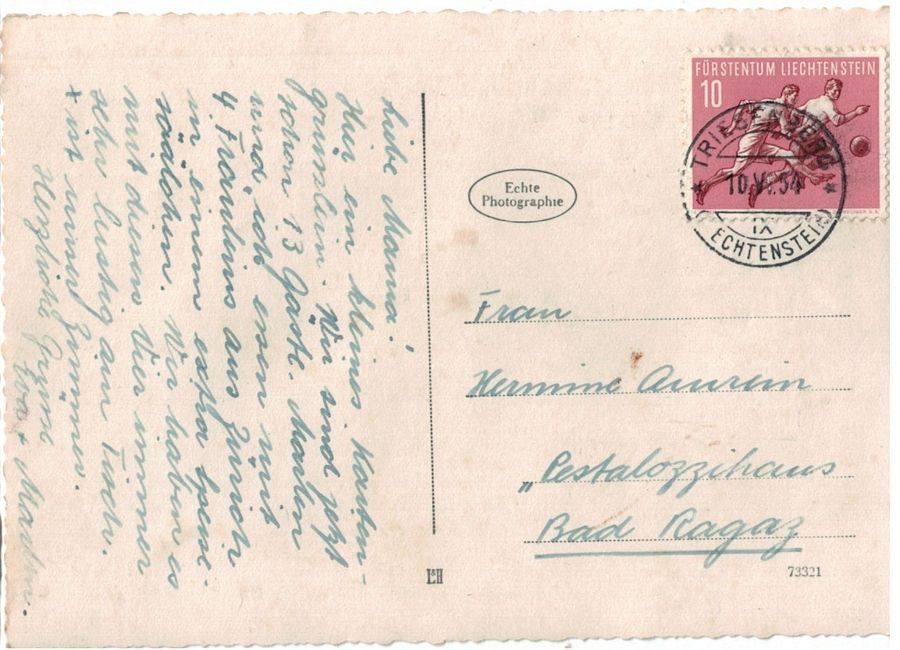 Liebe Mama!
Hier ein kleines Karten-
grüsslein. Wir sind jetzt
schon 13 Gäste. Martin
und ich essen mit
4 Fräuleins aus Zürich
in einem extra Speise-
sälchen. Wir haben es
mit diesen vier immer
sehr lustig am Tisch.
+ ist Zimmer.
Herzliche Grüsse
Eva + Martin.
Echte
Photographie
FÜRSTENTUM LIECHTENSTEIN
10
TRIESENBERG
10.VI.54
IX
LIECHTENSTEIN
Frau
Hermine Amrein
„Pestalozzihaus
Bad Ragaz
73321
L&H